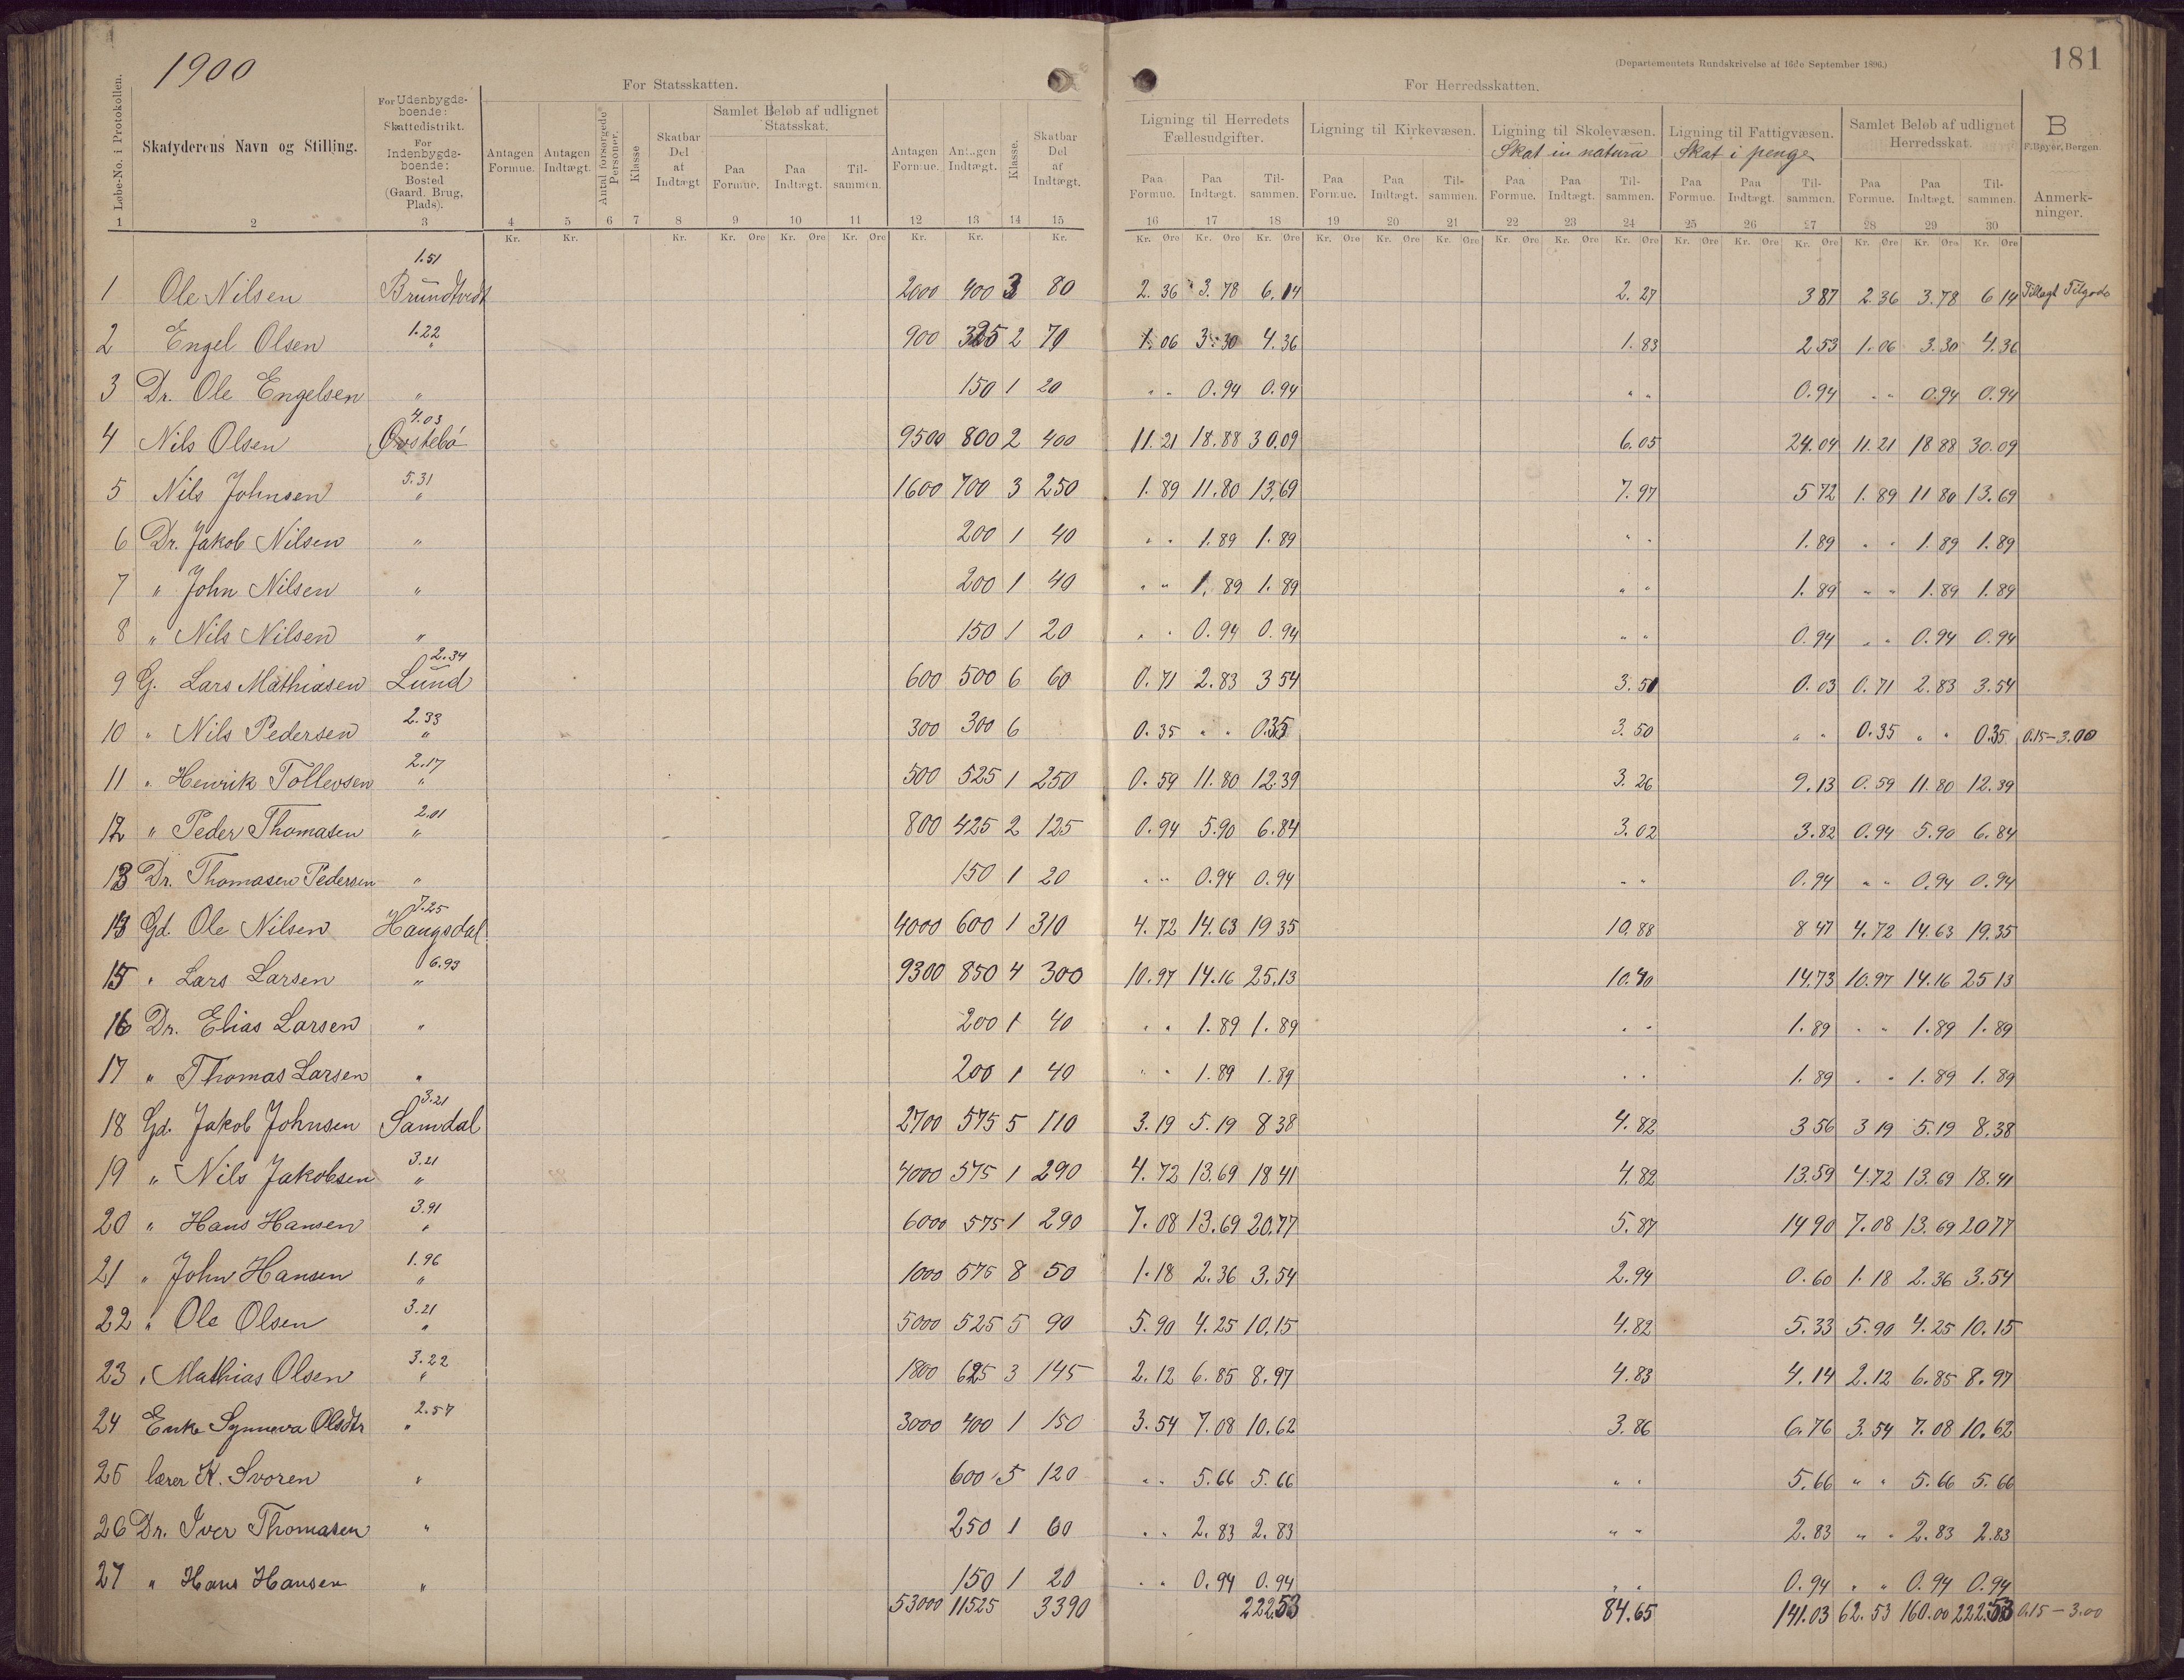 1900
181
(Departementets Rundskrivelse af 16de September 1896.)
For Statsskatten.
For Herredsskatten.
Løbe-No. i Protokollen.
Skatyderens Navn og Stilling.
For Udenbygdsboende: Skattedistrikt. For Indenbygdsboende: Bosted (Gaard, Brug, Plads).
Antagen Formue. Antagen Indtægt. Antal forsørgede Personer. Klasse Skatbar Del af Indtægt
Samlet Beløb af udlignet Statsskat.
Paa Formue. Paa Indtægt. Tilsammen.
Antagen Formue. Antagen Indtægt. Klasse. Skatbar Del af Indtægt.
Ligning til Herredets Fællesudgifter. Ligning til Kirkevæsen. Ligning til Skolevæsen. Skat in natura Ligning til Fattigvæsen. Skat i penge Samlet Beløb af udlignet Herredsskat.
B
F. Beyer, Bergen.
Paa Formue. Paa Indtægt. Tilsammen. Paa Formue. Paa Indtægt. Tilsammen. Paa Formue. Paa Indtægt. Tilsammen. Paa Formue. Paa Indtægt. Tilsammen. Paa Formue. Paa Indtægt. Tilsammen. Anmerkninger.
1 2 3 4 5 6 7 8 9 10 11 12 13 14 15 16 17 18 19 20 21 22 23 24 25 26 27 28 29 30
Kr. Kr. Kr. Kr. Øre Kr. Øre Kr. Øre Kr. Kr. Kr. Kr. Øre Kr. Øre Kr. Øre Kr. Øre Kr. Øre Kr. Øre Kr. Øre Kr. Øre Kr. Øre Kr. Øre Kr. Øre Kr. Øre Kr. Øre Kr. Øre Kr. Øre
1.51
1 Ole Nilsen Brundtvedt 2000 400 3 80 2.36 3.78 6.14 2.27 3 87 2.36 3.78 6 14 Tillagt Tilgode
1.22
2 Engel Olsen " 900 325 2 70 1.06 3.30 4.36 1.83 2 53 1.06 3.30 4.36
3 Dr. Ole Engelsen " 150 1 20 " " 0.94 0.94 " " 0.94 " " 0.94 0.94
4.03
4 Nils Olsen Østebö 9500 800 2 400 11.21 18.88 30.09 6.05 24.04 11.21 18 88 30.09
5.31
5 Nils Johnsen " 1600 700 3 250 1.89 11.80 13.69 7.97 5 72 1.89 11 80 13.69
6 Dr. Jakob Nilsen " 200 1 40 " " 1.89 1.89 " " 1.89 " " 1.89 1.89
7 " John Nilsen " 200 1 40 " " 1.89 1.89 " " 1.89 " " 1.89 1.89
8 " Nils Nilsen " 150 1 20 " " 0.94 0.94 " " 0.94 " " 0.94 0.94
2.34
9 G. Lars Mathiasen Lund 600 500 6 60 0.71 2.83 3 54 3.51 0.03 0.71 2.83 3.54
2.33
10 " Nils Pedersen " 300 300 6 0.35 " " 0.35 3.50 " " 0.35 " " 0.35 0.15-3.00
2.17
11 " Henrik Tollevsen " 500 525 1 250 0.59 11.80 12.39 3.26 9.13 0.59 11.80 12.39
2.01
12 " Peder Thomasen " 800 425 2 125 0.94 5.90 6.84 3.02 3.82 0.94 5.90 6.84
13 Dr. Thomasen Pedersen " 150 1 20 " " 0.94 0.94 " " 0.94 " " 0.94 0.94
7.25
14 Gd. Ole Nilsen Haugsdal 4000 600 1 310 4.72 14.63 19 35 10.88 8 47 4.72 14.63 19.35
6.93
15 " Lars Larsen " 9300 850 4 300 10.97 14.16 25.13 10.40 14.73 10.97 14.16 25 13
16 Dr. Elias Larsen " 200 1 40 " " 1.89 1.89 " " 1.89 " " 1.89 1.89
17 " Thomas Larsen " 200 1 40 " " 1.89 1.89 " " 1.89 " " 1.89 1.89
3.21
18 Gd. Jakob Johnsen Samdal 2700 575 5 110 3.19 5.19 8 38 4.82 3 56 3 19 5.19 8.38
3.21
19 " Nils Jakobsen " 4000 575 1 290 4.72 13.69 18 41 4.82 13.59 4.72 13.69 18.41
3.91
20 " Hans Hansen " 6000 575 1 290 7.08 13.69 20.77 5.87 14 90 7.08 13.69 20 77
1.96
21 " John Hansen " 1000 575 8 50 1.18 2.36 3.54 2.94 0.60 1.18 2.36 3.54
3.21
22 " Ole Olsen " 5000 525 5 90 5.90 4.25 10.15 4.82 5.33 5.90 4.25 10.15
3.22
23 " Mathias Olsen " 1800 625 3 145 2.12 6.85 8.97 4.83 4.14 2.12 6.85 8.97
2.57
24 Enke Synneva Olsdtr " 3000 400 1 150 3.54 7.08 10.62 3.86 6.76 3.54 7.08 10.62
25 lærer K. Svoren " 600 5 120 " " 5.66 5.66 " " 5.66 " " 5.66 5.66
26 Dr. Iver Thomasen " 250 1 60 " " 2.83 2.83 " " 2.83 " " 2.83 2.83
27 " Hans Hansen " 150 1 20 " " 0.94 0.94 " " 0.94 " " 0.94 0.94
53000 11525 3390 222.53 84.65 141.03 62.53 160.00 222.53 0.15-3.00